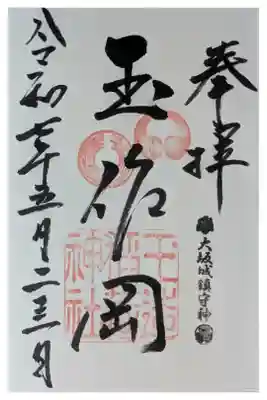 奉拝
大坂城鎮守神
玉佐岡
玉造稲荷神社
令和七年五月二三日